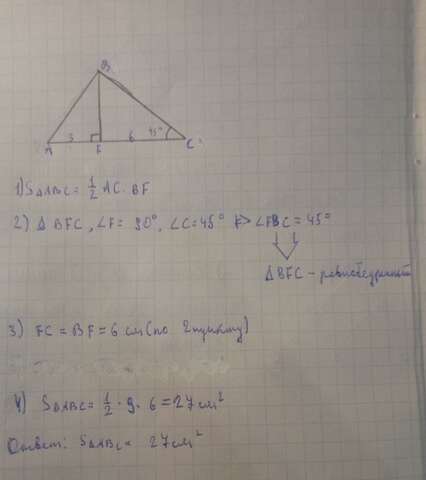 B
3 6 45°
A F C
1) S△ABC = 1/2 AC · BF
2) △ BFC, ∠F = 90°, ∠C = 45° => ∠FBC = 45°
△BFC – равнобедренный
3) FC = BF = 6 см (по 2 пункту)
4) S△ABC = 1/2 · 9 · 6 = 27 см²
Ответ: S△ABC = 27 см²